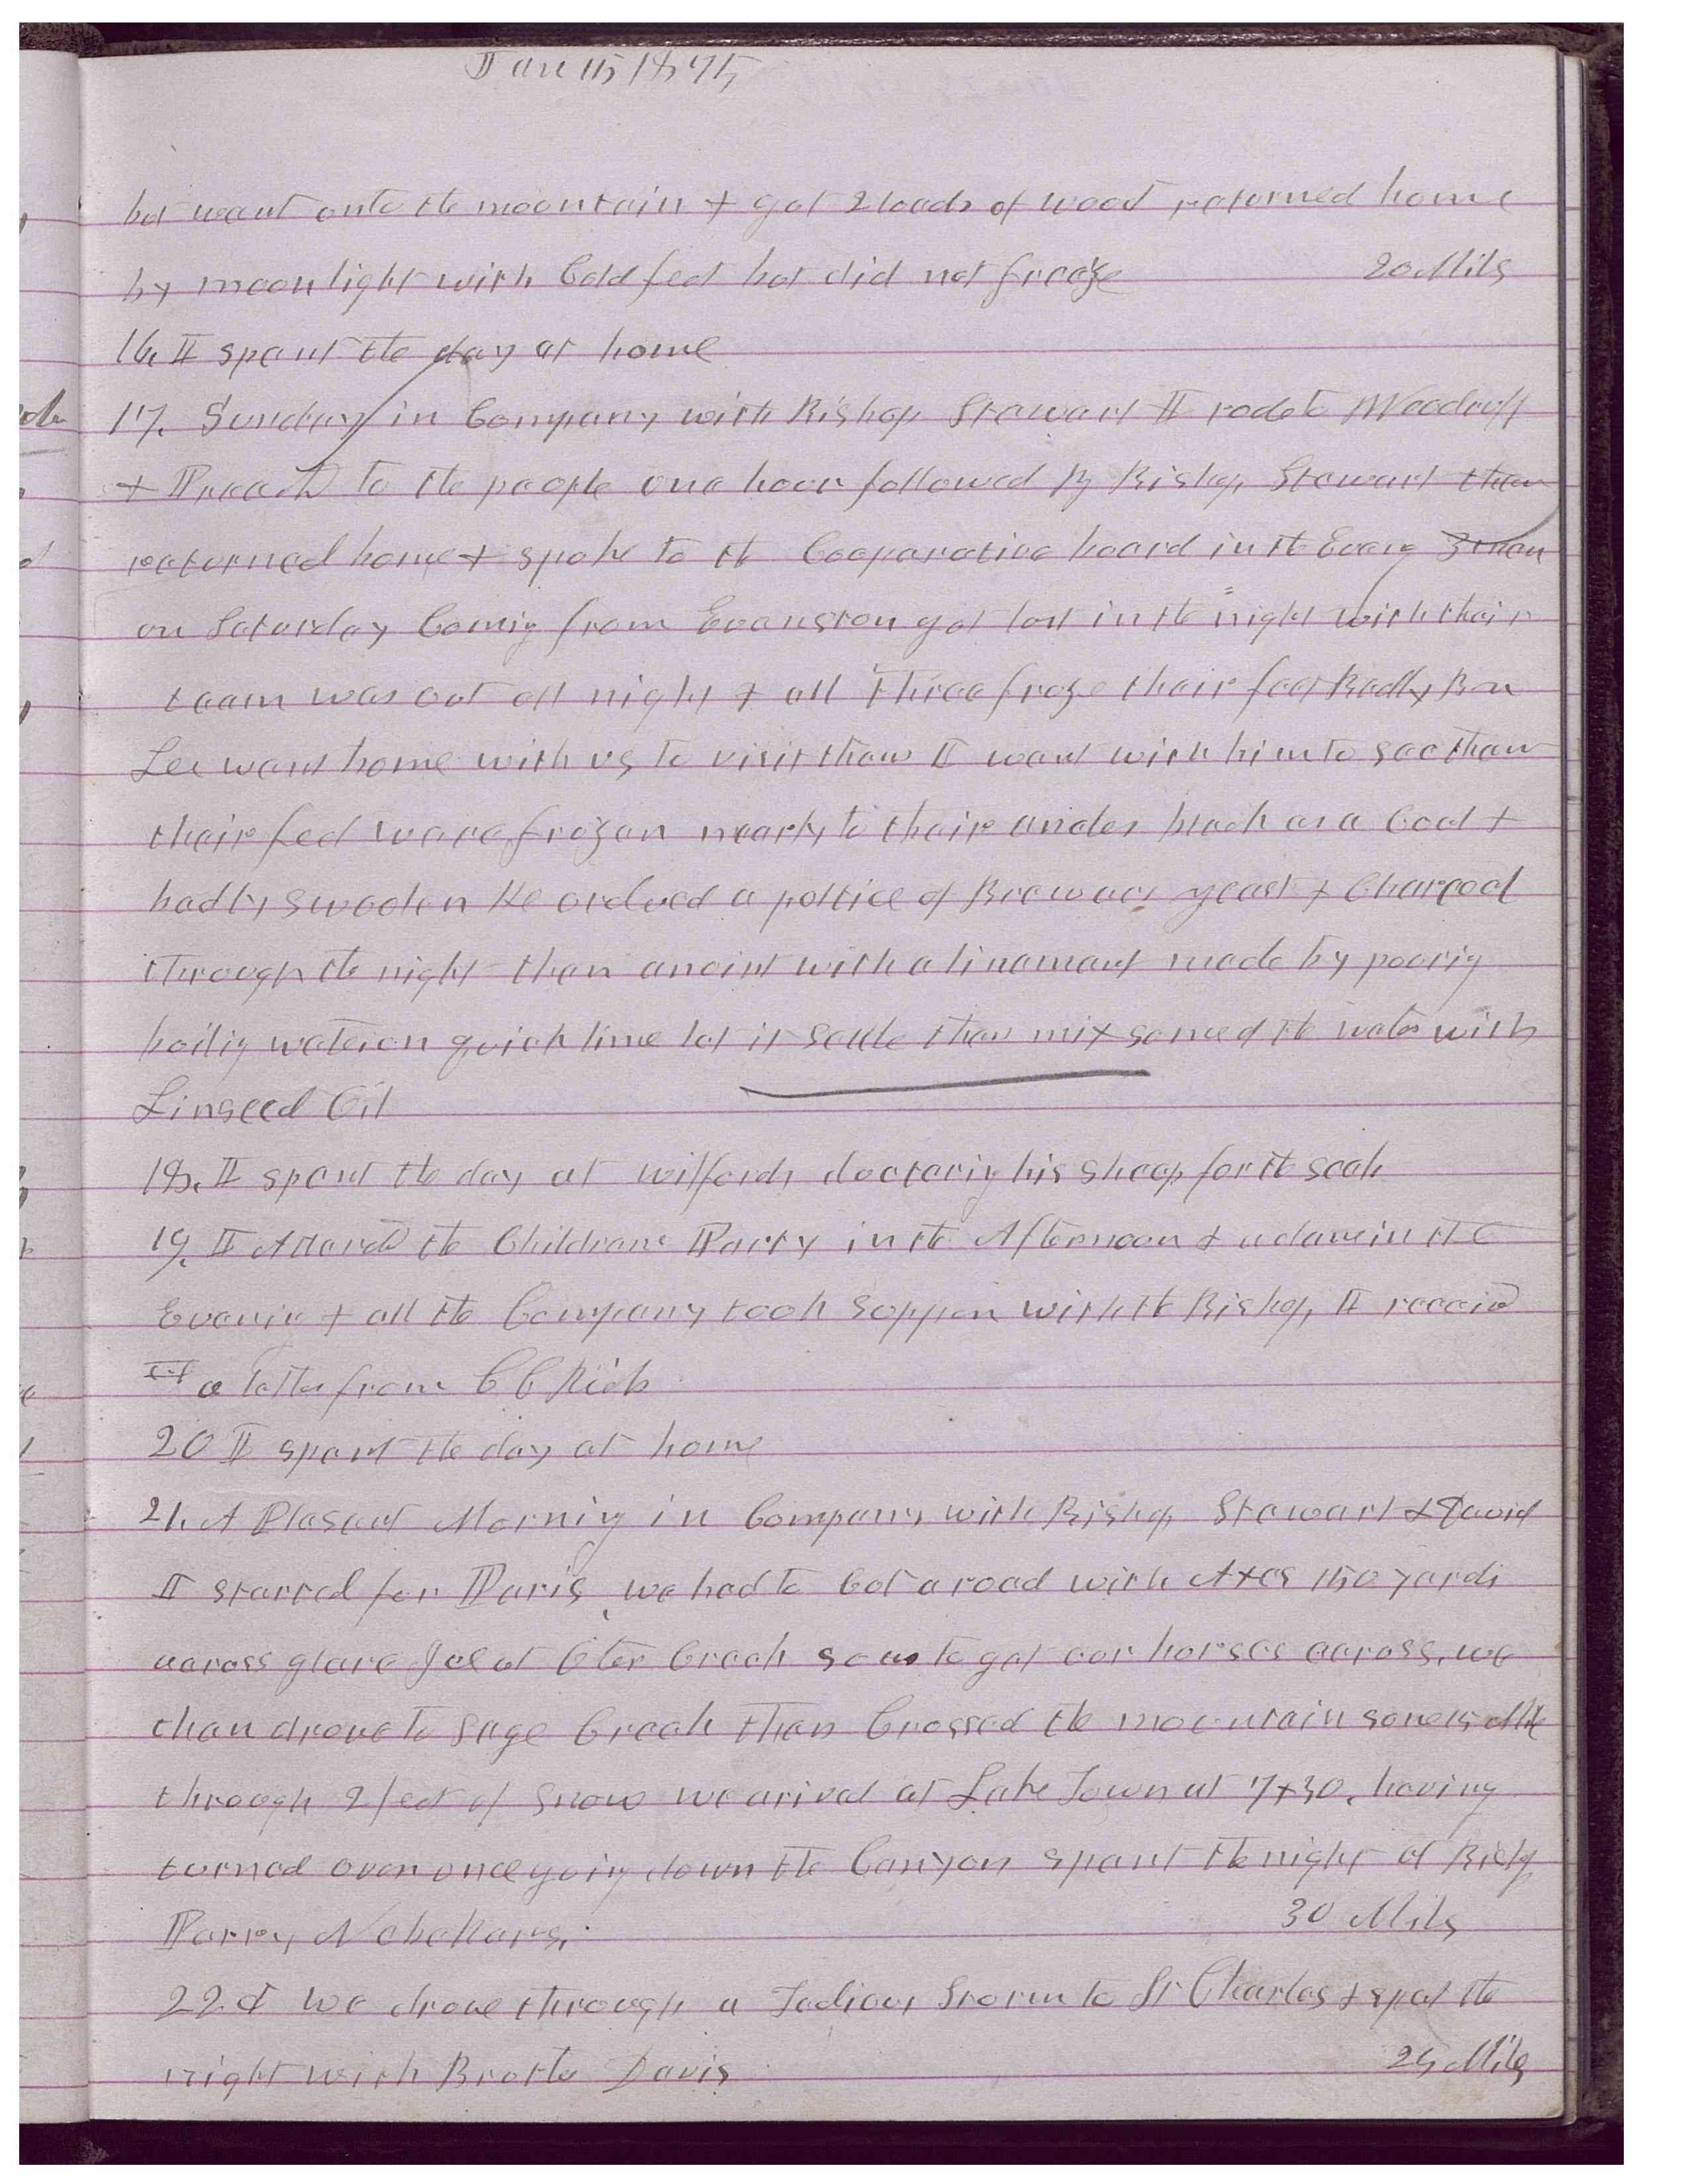 Jan 15 1875
but went onto the mountain & got 2 loads of wood returned home
by moonlight with Cold feet but did not freeze 20 Mils
16. I spent the day at home
17. Sunday in Company with Bishop Stewart I rode to Woodruff
& Preachd to the people one hour followed By Bishop Stewart then
returned home & spoke to the Cooparative board in the Eveng 3 men
on Saturday Comig from Evanston got lost in the night with their
team was out all night & all Three froze their feet Badly Bro
Lee went home with us to visit them I went with him to see them
their feet ware frozen nearly to their ancles black as a Coal &
badly swoolen He ordered a poltice of Brewers yeast & Charcoal
through the night then anoint with a linament made by poorig
boilig water on quick lime let it settle then mix some of the water with
Linseed Oil
18. I spent the day at Wilfords doctorig his sheep for the scab
19. I Attend the Childrens Party in the Afternoon & a dance in the
Evenig & all the Company took Supper with the Bishop I receivd
a letter from C C Rich
20 I spent the day at home
21. A Plasant Mornig in Company with Bishop Stewart & David
I started for Paris we had to Cut a road with Axes 150 yards
across glare Ice at Oter Creek so as to get our horses across. we
then drove to Sage Creek then Crossed the mountain some 15 Mile
through 2 feet of Snow we arived at Lake Town at 7+30. having
turned over once goig down the Canyon spent the night at Bishp
Parry Nebekars. 30 Mils
22.d we drove through a Tedious Storm to St Charles & spet the
night with Brother Davis 25 Mils